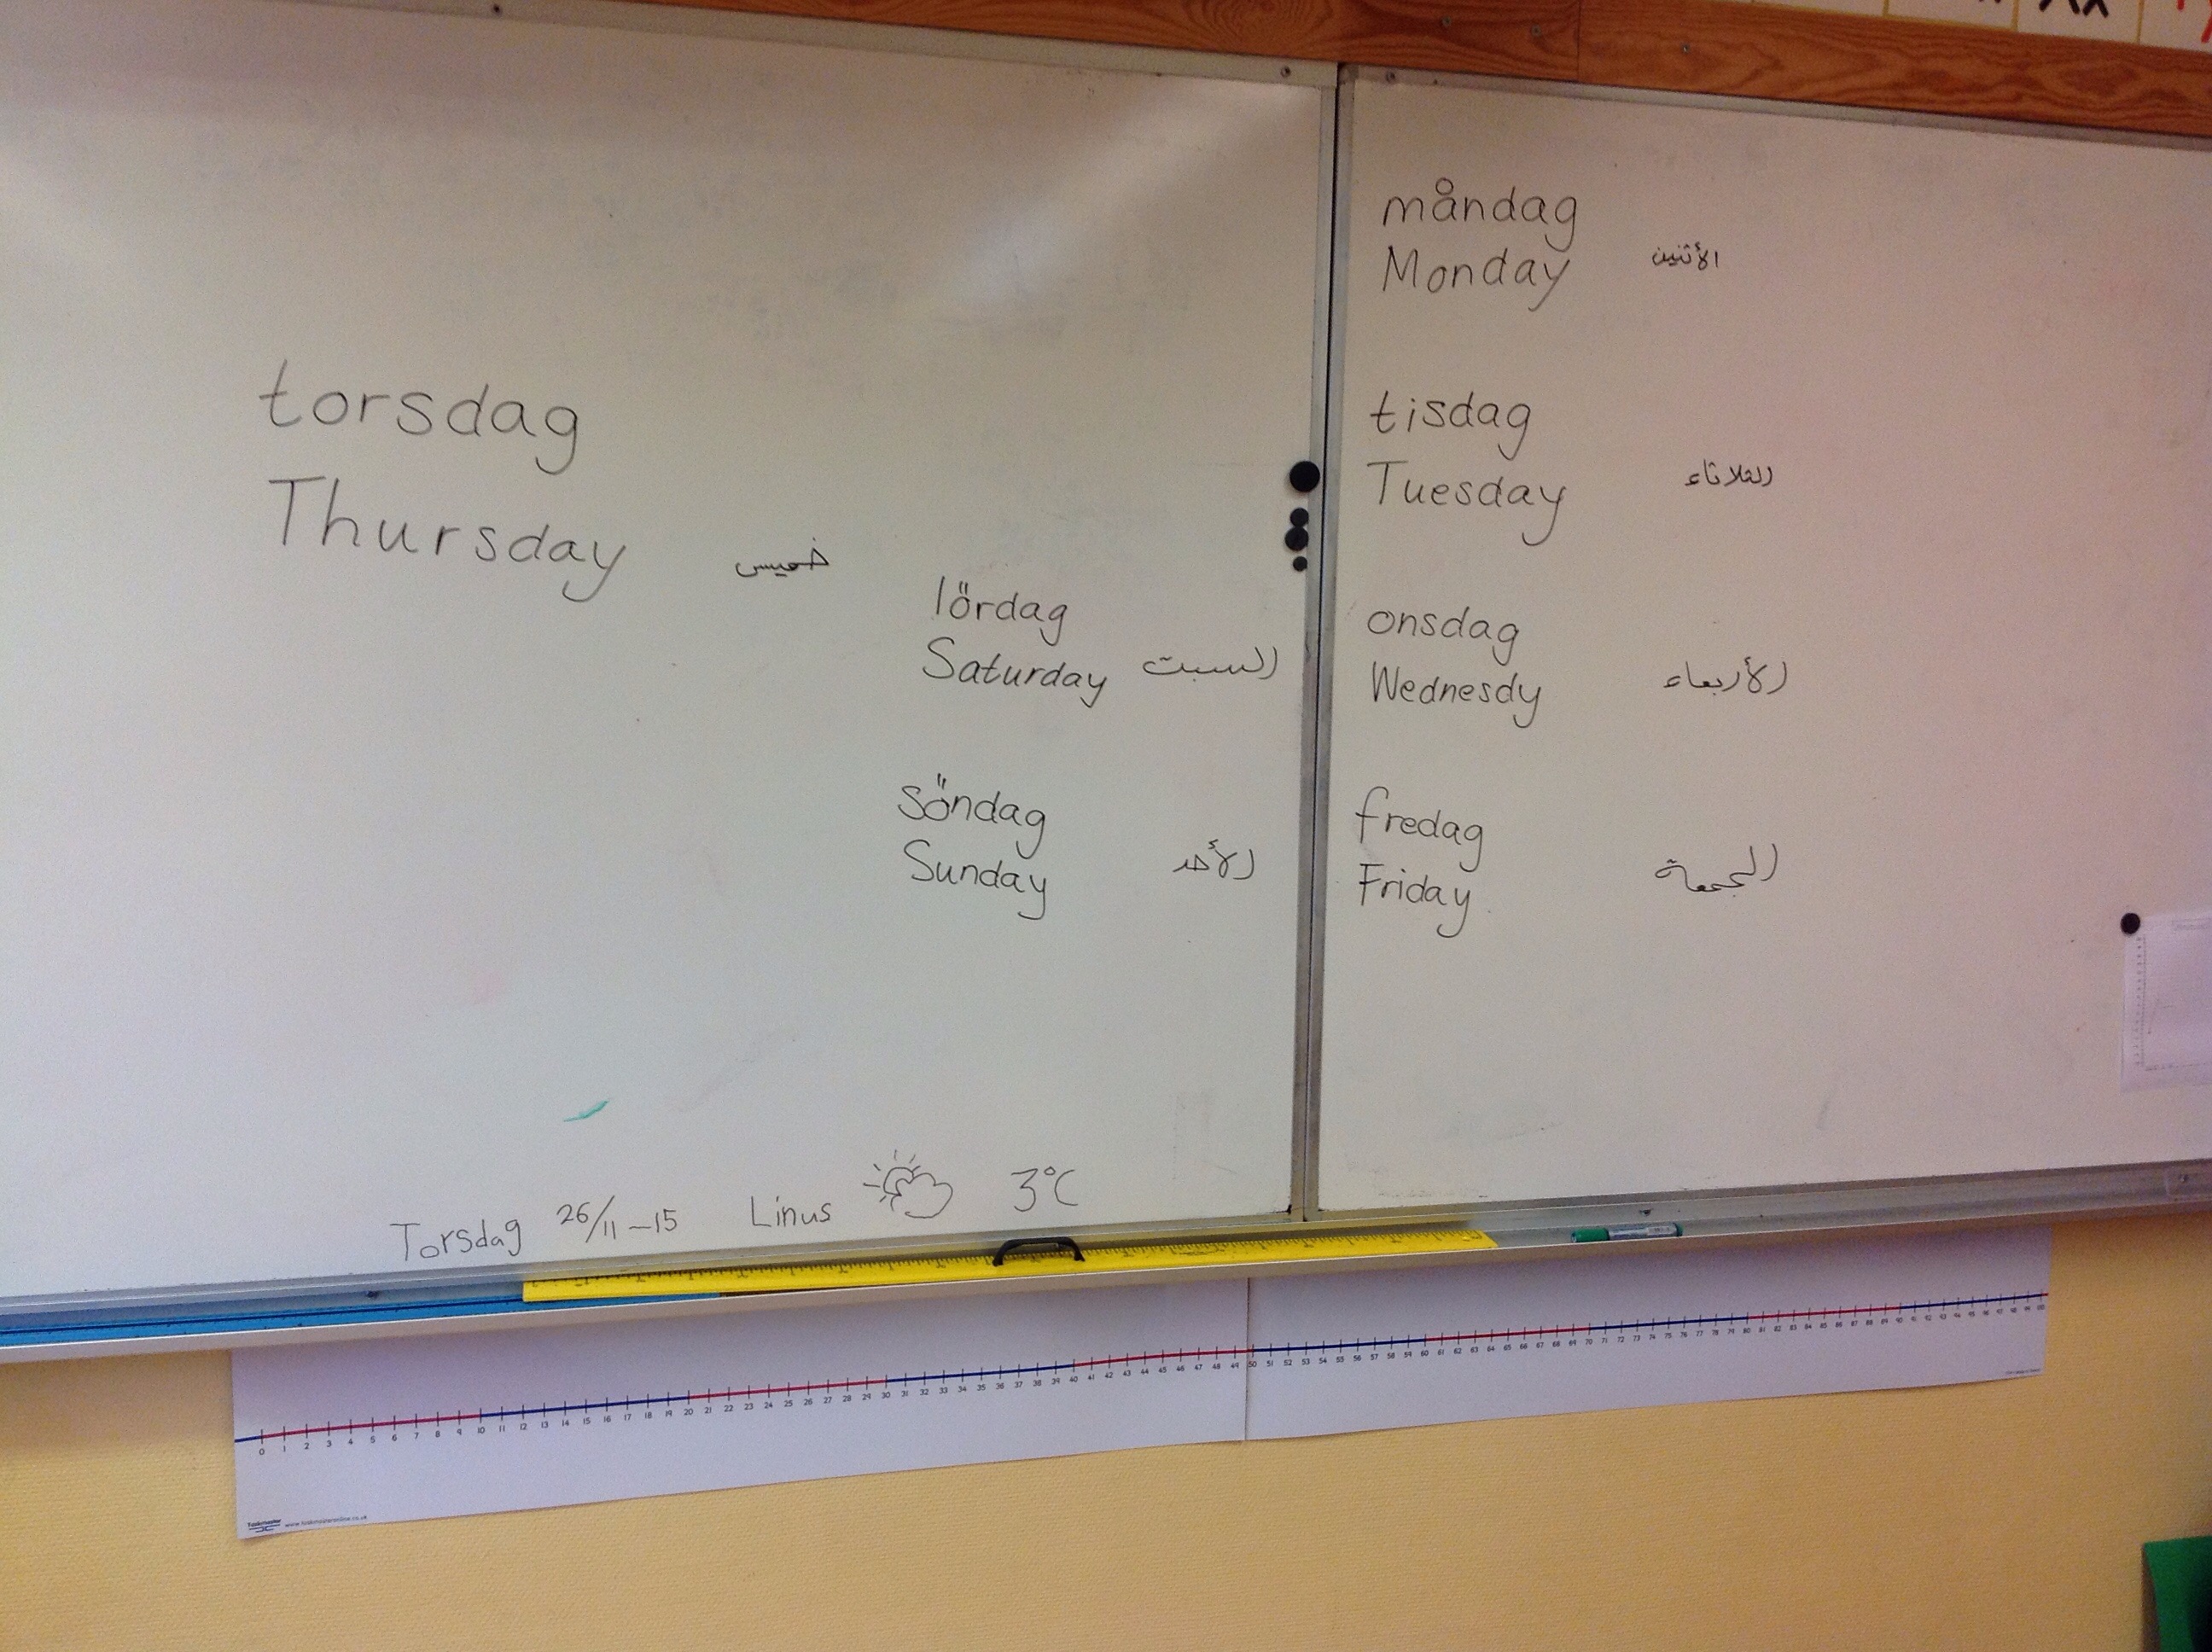 torsdag
Thursday خميس
lördag
Saturday السبت
söndag
Sunday الأحد
Torsdag 26/11-15 Linus 3°C
måndag
Monday الأثنين
tisdag
Tuesday الثلاثاء
onsdag
Wednesdy الأربعاء
fredag
Friday الجمعة
0 1 2 3 4 5 6 7 8 9 10 11 12 13 14 15 16 17 18 19 20 21 22 23 24 25 26 27 28 29 30 31 32 33 34 35 36 37 38 39 40 41 42 43 44 45 46 47 48 49 50 51 52 53 54 55 56 57 58 59 60 61 62 63 64 65 66 67 68 69 70 71 72 73 74 75 76 77 78 79 80 81 82 83 84 85 86 87 88 89 90 91 92 93 94 95 96 97 98 99 100